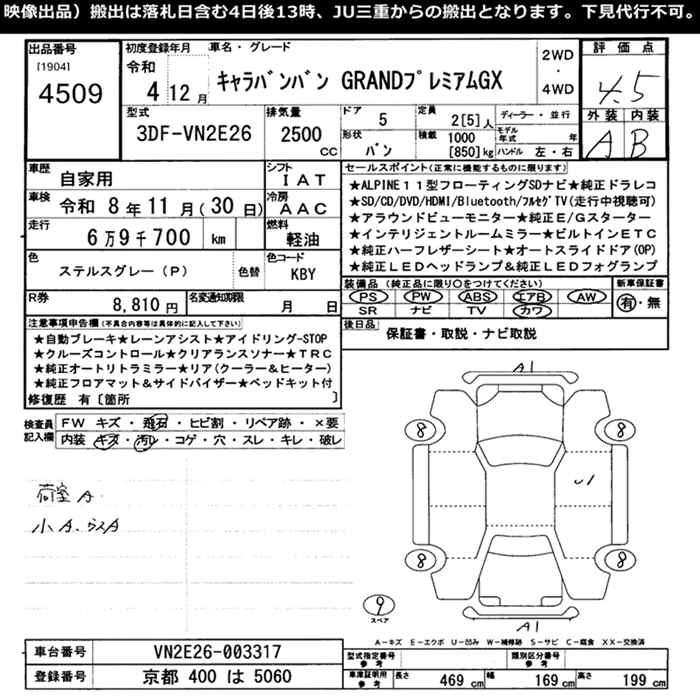 映像出品）搬出は落札日含む4日後13時、JU三重からの搬出となります。下見代行不可。
出品番号 初度登録年月 車名・グレード 2WD・4WD 評価点
[1904] 4509 令和 4年12月 キャラバンバン GRANDプレミアムGX 4.5
型式 排気量 ドア 定員 ディーラー・並行 外装 内装
3DF-VN2E26 2500 CC 5 2[5]人 モデル年式 年 A B
形状 バン 積載 1000 [850]kg ハンドル 左・右
車歴 自家用 シフト IAT セールスポイント(正常に機能するものに限ります)
車検 令和 8年11月(30日) 冷房 AAC
★ALPINE11型フローティングSDナビ★純正ドラレコ
★SD/CD/DVD/HDMI/Bluetooth/フルセグTV(走行中視聴可)
走行 6万9千700 km 燃料 軽油
★アラウンドビューモニター★純正E/Gスターター
★インテリジェントルームミラー★ビルトインETC
色 ステルスグレー(P) 色替 色コード KBY
★純正ハーフレザーシート★オートスライドドア(OP)
★純正LEDヘッドランプ&純正LEDフォグランプ
R券 8,810円 名変通知期限 月 日
装備品 (純正品に限り○をつけてください) 新車保証書
PS PW ABS エアB AW 有・無
SR ナビ TV カワ
注意事項申告欄(不具合内容等は具体的に記入して下さい)
後日品 保証書・取説・ナビ取説
★自動ブレーキ★レーンアシスト★アイドリング-STOP
★クルーズコントロール★クリアランスソナー★TRC
★純正オートリトラミラー★リア(クーラー&ヒーター)
★純正フロアマット&サイドバイザー★ベッドキット付
修復歴 有〔箇所 〕
検査員記入欄 FW キズ・飛石・ヒビ割・リペア跡・×要
内装 キズ・汚レ・コゲ・穴・スレ・キレ・破レ
A1
8 8
荷室A U1
小A.
8 8
9 スペア
A1
A-キズ E-エクボ U-凹み W-補修跡 S-サビ C-腐食 XX-交換済
車台番号 VN2E26-003317 型式指定番号 参考 類別区分番号 参考
登録番号 京都 400 は 5060 車庫証明用 参考 長さ 469 cm 幅 169 cm 高さ 199 cm